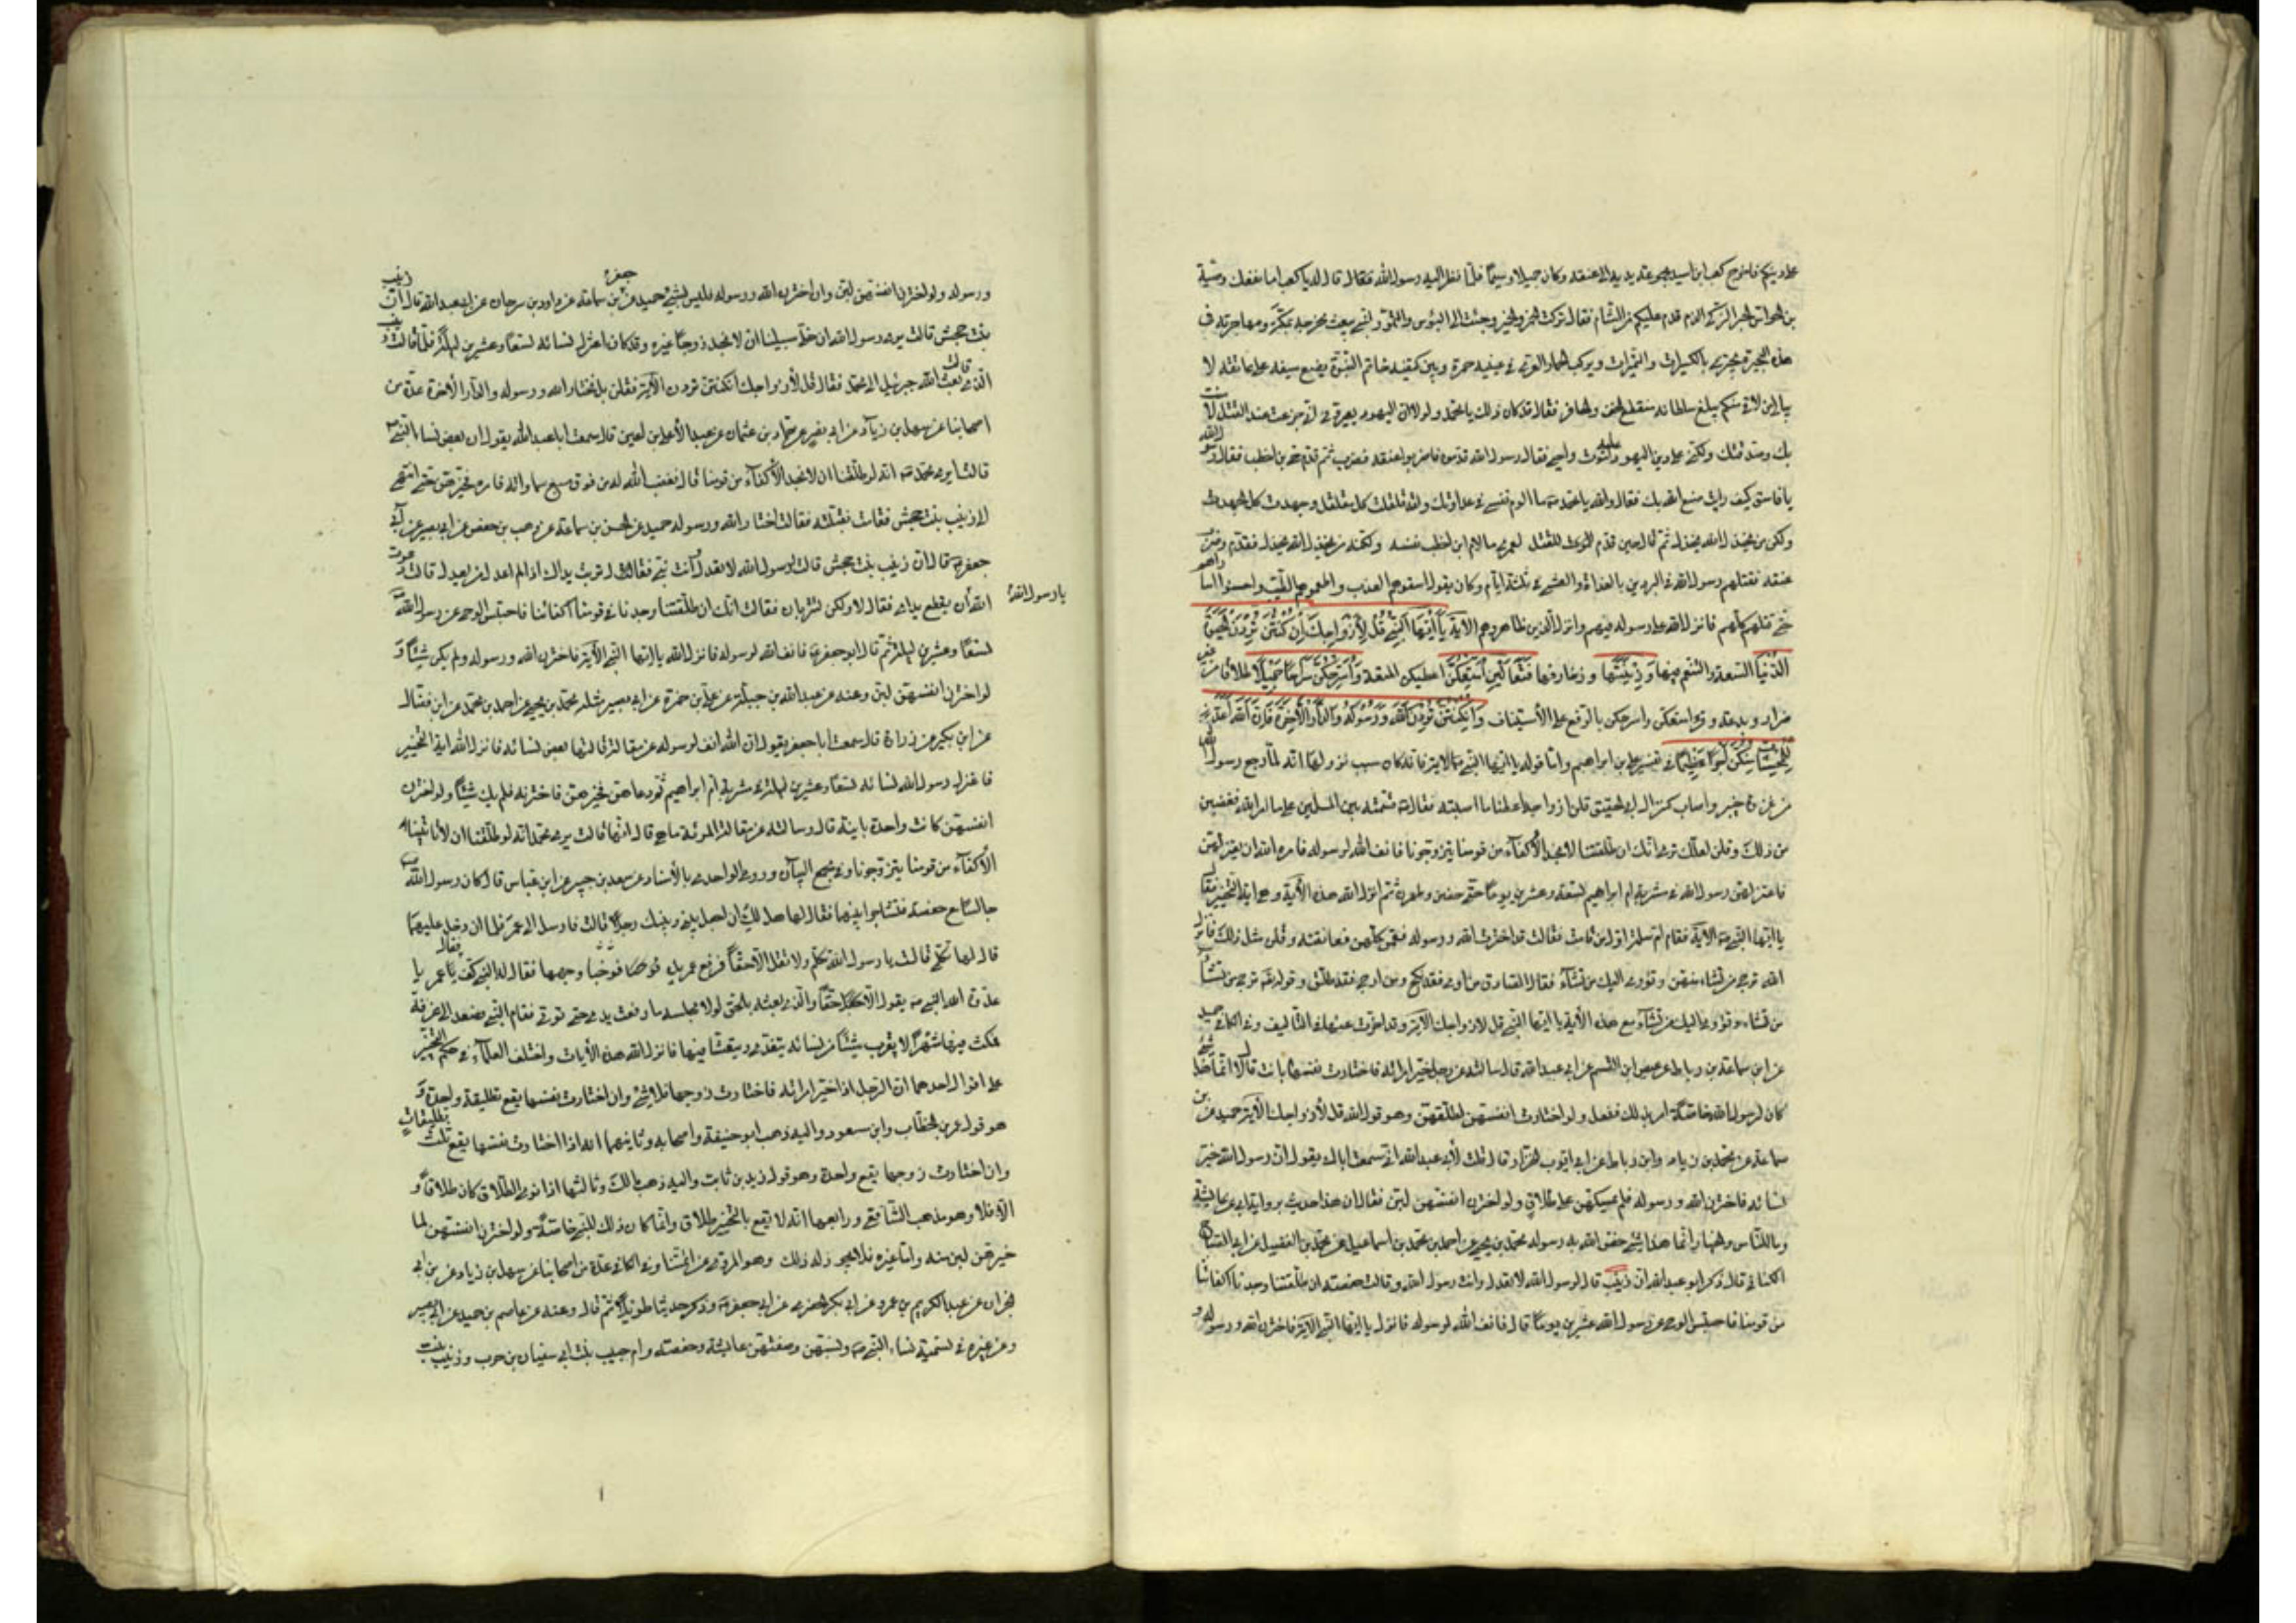 على دينكم فاخرج كعب ابن اسيد مجموعة يديه الى عنقه وكان جميلا وسيما فلما نظر اليه رسول الله فقال قال له يا كعب اما نفعك وصية
بن الحواس الحبر الذكى الذى قدم عليكم من الشام فقال تركت الخمر والخير وجئت الى البؤس والتمور لنبى يبعث مخرجه بمكة ومهاجرته فى
هذه البحيرة يجتزى بالكسيرات والتميرات ويركب الحمار العرى فى عينيه حمرة وبين كتفيه خاتم النبوة يضع سيفه على عاتقه لا
يبالى من لاقى منكم يبلغ سلطانه منقطع الخف والحافر فقال قد كان ذلك يا محمد ولولا ان اليهود يعيرونى انى جزعت عند القتل لامنت
بك وصدقتك ولكنى على دين اليهود عليه واموت واحيى فقال رسول الله قدموه فاضربوا عنقه فضرب ثم قدم حى بن اخطب فقال رسول الله
يا فاسق كيف رايت صنع الله بك فقال والله يا محمد ما الوم نفسى فى عداوتك ولقد قلقلت كل مقلقل وجهدت كل الجهد
ولكن من يخذل الله يخذل ثم قال حين قدم للقتل لعمرى ما لام ابن اخطب نفسه ولكنه من يخذل الله يخذل فقدم وضرب
عنقه فقتلهم رسول الله فى البردين بالغداة والعشى فى ثلثة ايام وكان يقول اسقوهم العذب واطعموهم الطيب واحسنوا اسارهم
حتى قتلهم كلهم فانزل الله على رسوله فيهم وانزل الذين ظاهروهم الاية يا ايها النبى قل لازواجك ان كنتن تردن الحيوة
الدنيا السعة والتنعم فيها وزينتها وزخارفها فتعالين امتعكن اعطيكن المتعة واسرحكن سراحا جميلا طلاقا من غير
ضرار وبدعة وقرئ امتعكن واسرحكن بالرفع على الاستيناف وان كنتن تردن الله ورسوله والدار الاخرة فان الله اعد
للمحسنات منكن اجرا عظيما فى تفسير على بن ابراهيم واما قوله يا ايها النبى الاية فانه كان سبب نزولها انه لما رجع رسول الله
من غزوة خيبر واصاب كنز ال ابى الحقيق قلن ازواجه اعطنا ما اصبته فقال قسمته بين المسلمين على ما امر الله فغضبن
من ذلك وقلن لعلك ترى انك ان طلقتنا لا نجد الاكفاء من قومنا يتزوجونا فانف الله لرسوله فامره الله ان يعتزلهن
فاعتزلهن رسول الله فى مشربة ام ابراهيم تسعة وعشرين يوما حتى حضن وطهرن ثم انزل الله هذه الاية وهى اية التخيير فقال
يا ايها النبى الاية فقامت ام سلمة اول من قامت فقالت قد اخترت الله ورسوله فقمن كلهن فعانقنه وقلن مثل ذلك فانزل
الله ترجى من تشاء منهن وتؤوى اليك من تشاء فقال الصادق من اوى فقد نكح ومن ارجى فقد طلق وقوله ترجى من تشاء
من تشاء وتؤوى اليك من تشاء مع هذه الاية يا ايها النبى قل لازواجك الاية وقد اخرت عنها فى التاليف وفى الكافى حميد
عن ابن سماعة بن رباط عن عيص ابن القسم عن ابى عبد الله قال سالته عن رجل خير امراته فاختارت نفسها بانت قال لا انما هذا شئ
كان لرسول الله خاصة امر بذلك ففعل ولو اخترن انفسهن لطلقهن وهو قول الله قل لازواجك الاية حميد عن ابن
سماعة عن محمد بن زياد وابن رباط عن ابى ايوب الخزاز قال قلت لابى عبد الله انى سمعت اباك يقول ان رسول الله خير
نسائه فاخترن الله ورسوله فلم يمسكهن على طلاق ولو اخترن انفسهن لبن فقال ان هذا حديث يرويه ابى عن عايشة
وما للناس والخيار انما هذا شئ خص الله به رسوله محمد بن يحيى عن احمد بن محمد بن اسماعيل عن محمد بن الفضيل عن ابى الصباح
الكنانى قال ذكر ابو عبد الله ان زينب قالت لرسول الله لا تعدل وانت رسول الله وقالت حفصة ان طلقتنا وجدنا اكفائنا
من قومنا فاحتبس الوحى عن رسول الله عشرين يوما قال فانف الله لرسوله فانزل يا ايها النبى الاية فاخترن الله ورسوله و
ورسوله ولو اخترن انفسهن لبن وان اخترن الله ورسوله فليس بشئ حميد عن بن سماعة عن جعفر داود بن سرحان عن ابى عبد الله قال ان زينب
بنت جحش قالت يرى رسول الله ان خلا سبيلنا ان لا نجد زوجا غيره وقد كان اعتزل نسائه تسعا وعشرين ليلة فلما قالت زينب
الذى قالت بعث الله جبرئيل الى محمد فقال قل لازواجك ان كنتن تردن الاية فقلن بل نختار الله ورسوله والدار الاخرة عدة من
اصحابنا عن سهل بن زياد عن ابى نصر عن حماد بن عثمان عن عبد الاعلى بن اعين قال سمعت ابا عبد الله يقول ان بعض نساء النبى
قالت ايرى محمد انه لو طلقنا ان لا نجد الاكفاء من قومنا قال فغضب الله له من فوق سبع سماواته فامره فخيرهن حتى انتهى
الى زينب بنت جحش فقامت فقبلته فقالت اختار الله ورسوله حميد عن الحسن بن سماعة عن وهب بن حفص عن ابى بصير عن ابى
جعفر قال ان زينب بنت جحش قالت لرسول الله لا تعدل وانت نبى فقال لها تربت يداك اذا لم اعدل فمن يعدل قالت دعوت
يا رسول الله
الله ان يقطع يداى فقال لا ولكن لتتربان فقالت انك ان طلقتنا وجدنا فى قومنا اكفائنا فاحتبس الوحى عن رسول الله
تسعا وعشرين ليلة ثم قال ابو جعفر فانف الله لرسوله فانزل الله يا ايها النبى الاية فاخترن الله ورسوله ولم يكن شيئا و
لو اخترن انفسهن لبن وعنه عن عبد الله بن جبلة عن على بن حمزة عن ابى بصير مثله محمد بن يحيى عن احمد بن محمد عن ابن فضال
عن ابن بكير عن زرارة قال سمعت ابا جعفر يقول ان الله انف لرسوله من مقالة قالتها بعض نسائه فانزل الله اية التخيير
فاعتزل رسول الله نسائه تسعا وعشرين ليلة فى مشربة ام ابراهيم ثم دعاهن فخيرهن فاخترنه فلم يك شيئا ولو اخترن
انفسهن كانت واحدة باينة قال وسالته عن مقالة المرئة ما هى قال انها قالت يرى محمد انه لو طلقنا ان لا ياتينا
الاكفاء من قومنا يتزوجونا وفى مجمع البيان وروى الواحدى بالاسناد عن سعيد بن جبير عن ابن عباس قال كان رسول الله
جالسا مع حفصة فتشاجرا بينهما فقال لها هل لك ان اجعل بينى وبينك رجلا قالت فارسل الى عمر فلما ان دخل عليهما
قال لها تكلمى قالت يا رسول الله تكلم ولا تقل الا حقا فرفع عمر يده فوجا وجهها فقال له النبى كف فقال عمر يا
عدوة الله النبى لا يقول الا حقا والذى بعثه بالحق لولا مجلسه ما رفعت يدى حتى تموتى فقام النبى فصعد الى غرفة
فمكث فيها شهرا لا يقرب شيئا من نسائه يتغدى ويتعشا فيها فانزل الله هذه الايات واختلف العلماء فى حكم التخيير
على اقوال احدها ان الرجل اذا خير امراته فاختارت زوجها فلا شئ وان اختارت نفسها يقع تطليقة واحدة و
هو قول عمر بن الخطاب وابن مسعود واليه ذهب ابو حنيفة واصحابه وثانيهما انه اذا اختارت نفسها يقع ثلث تطليقات
وان اختارت زوجها يقع واحدة وهو قول زيد بن ثابت واليه ذهب مالك وثالثها اذا نوى الطلاق كان طلاقا و
الا فلا وهو مذهب الشافعى ورابعها انه لا يقع بالتخيير طلاق وانما كان ذلك للنبى خاصة ولو اخترن انفسهن لما
خيرهن لبن منه واما غيره فلا يجوز له ذلك وهو المروى عن ائمتنا وفى الكافى عدة من اصحابنا عن سهل بن زياد عن بن ابى
نجران عن عبد الكريم بن عمرو عن ابى بكر الحضرمى عن ابى جعفر وذكر حديثا طويلا ثم قال وعنه عن عاصم بن حميد عن ابى بصير
وعن غيره فى تسمية نساء النبى ونسبهن وصفتهن عايشة وحفصة وام حبيب بنت ابى سفيان بن حرب وزينب بنت